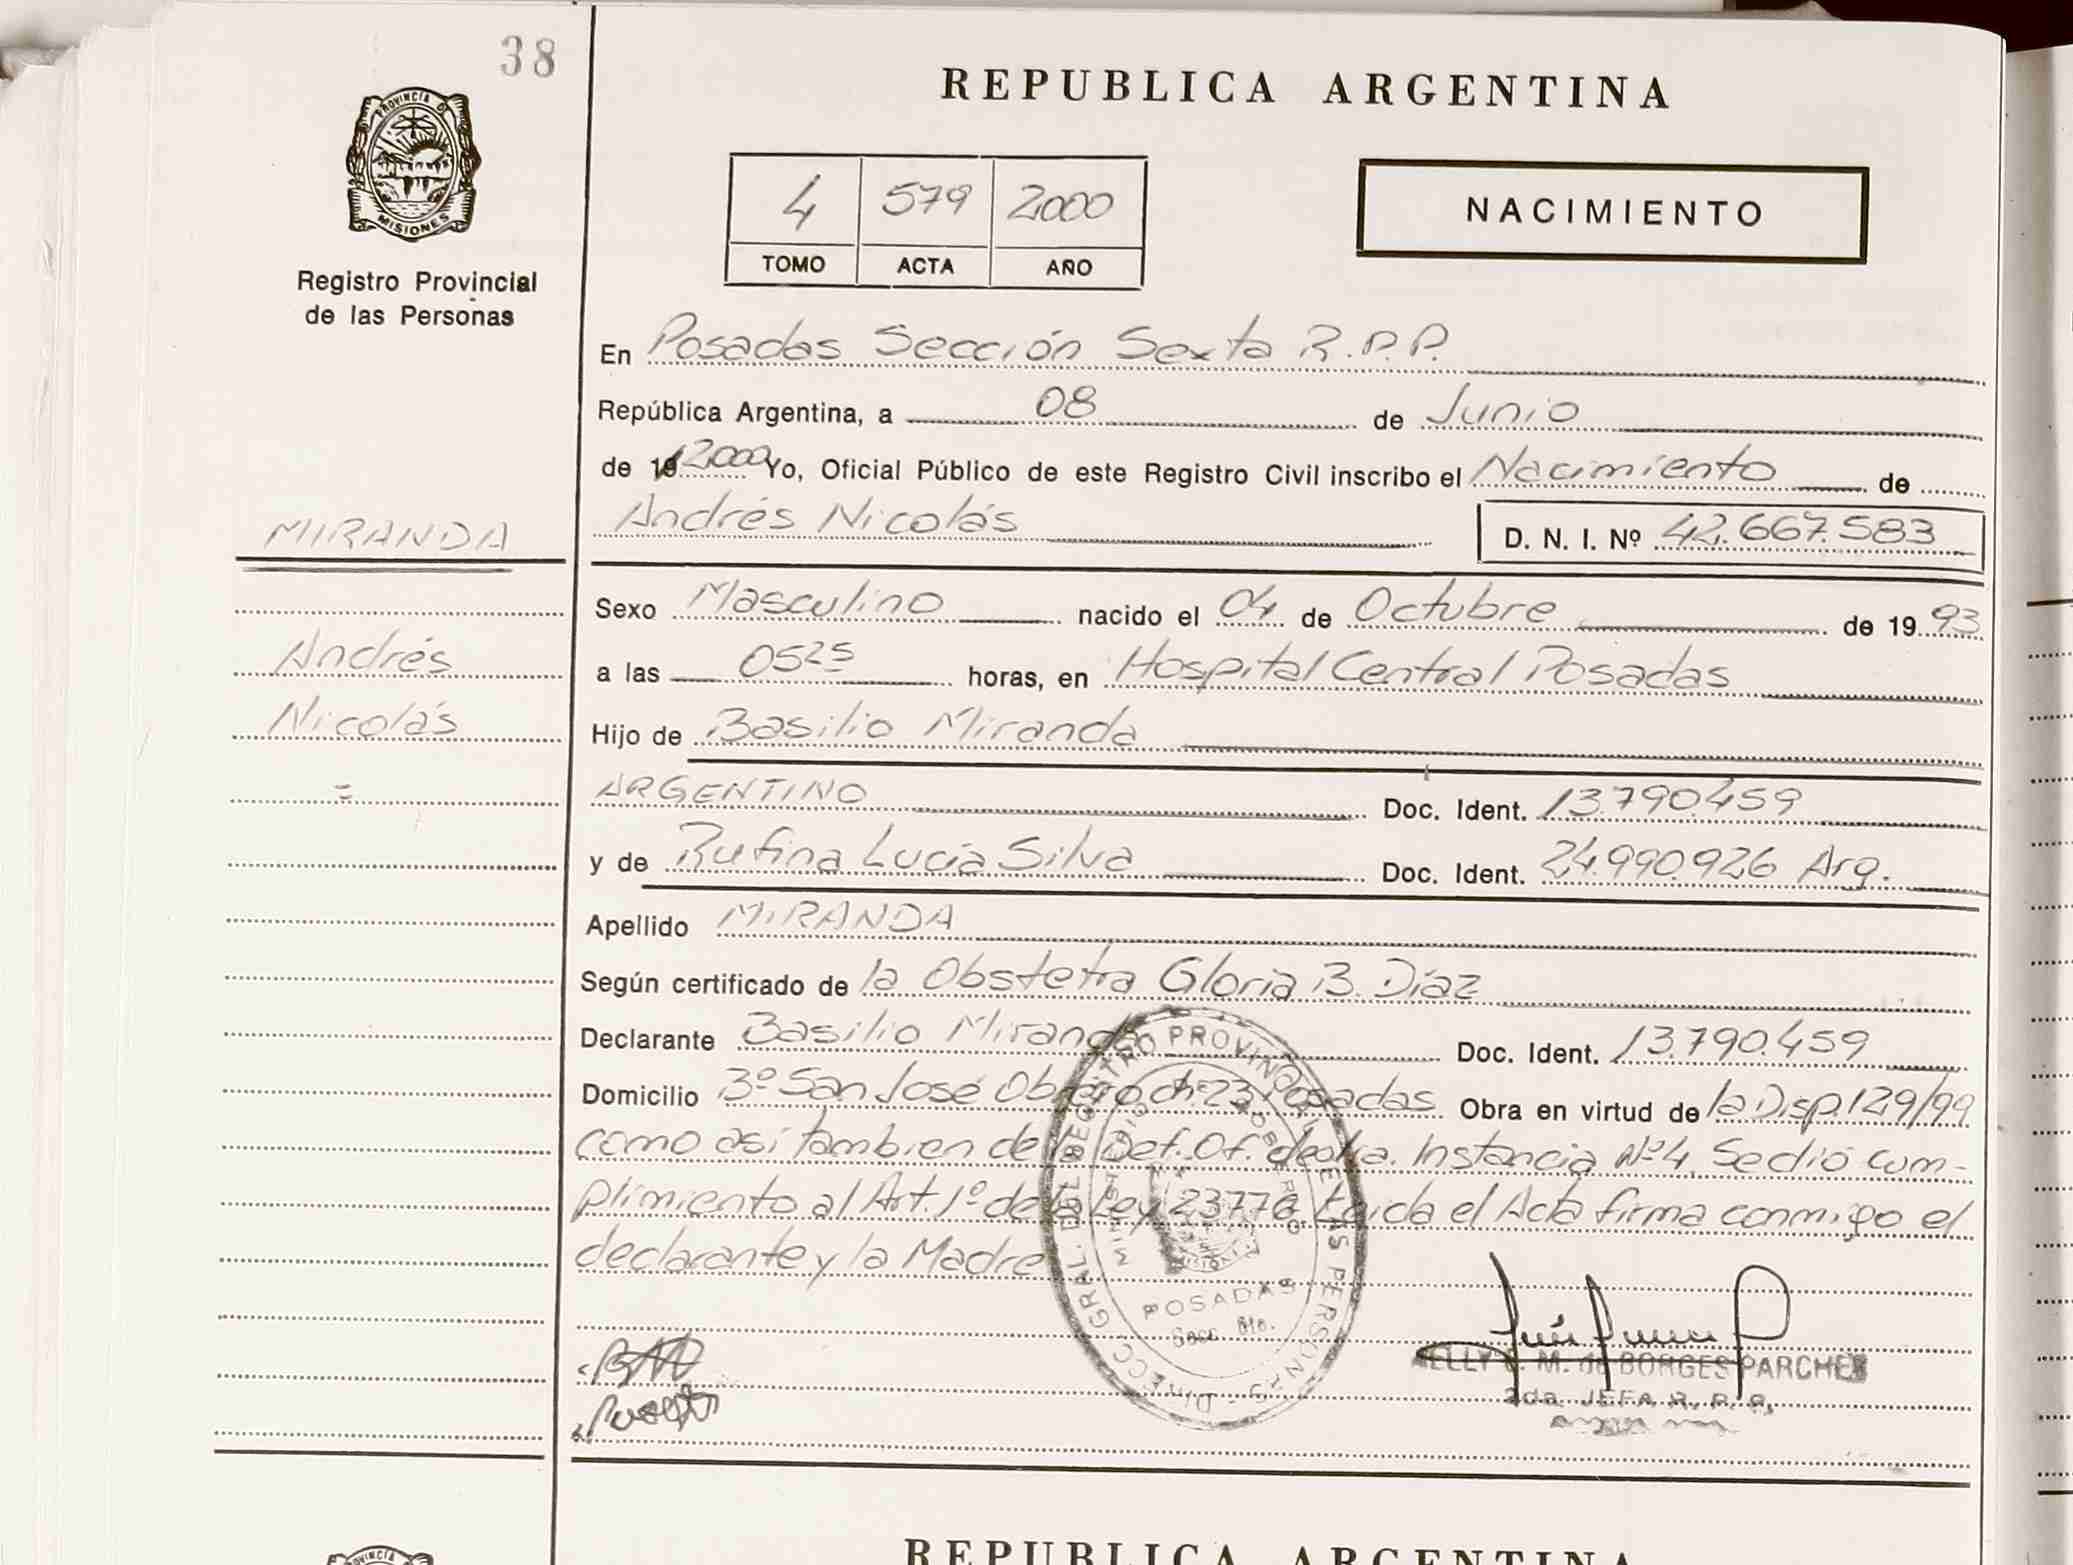 38
REPUBLICA ARGENTINA
PROVINCIA D
MISIONES
Registro Provincial
de las Personas
4 579 2000
TOMO ACTA AÑO
NACIMIENTO
En Posadas Sección Sexta R.P.P.
República Argentina, a 08 de Junio
de 19 2000 Yo, Oficial Público de este Registro Civil inscribo el Nacimiento de
MIRANDA
Andrés Nicolás D. N. I. Nº 42.667.583
Sexo Masculino nacido el 04 de Octubre de 19 93
Andrés
a las 0525 horas, en Hospital Central Posadas
Nicolás
Hijo de Basilio Miranda
=
ARGENTINO Doc. Ident. 13.790.459
y de Rufina Lucía Silva Doc. Ident. 24.990.926 Arg.
Apellido MIRANDA
Según certificado de la Obstetra Gloria B. Díaz
Declarante Basilio Miranda Doc. Ident. 13.790.459
Domicilio Bº San José Obrero ch. 23 Posadas Obra en virtud de la Disp. 129/99
como asi tambien de la Def. Of. de Instancia Nº 4. Se dió cum-
plimiento al Art. 1º de la Ley 23776. Leida el Acta firma conmigo el
declarante y la Madre
DIRECC. GRAL. DEL REGISTRO PROVINCIAL DE LAS PERSONAS
POSADAS
Secc. 6ta.
M. de BORGES PARCHEN
2da. JEFA R. P. P.
REPUBLICA ARGENTINA
PROVINCIA